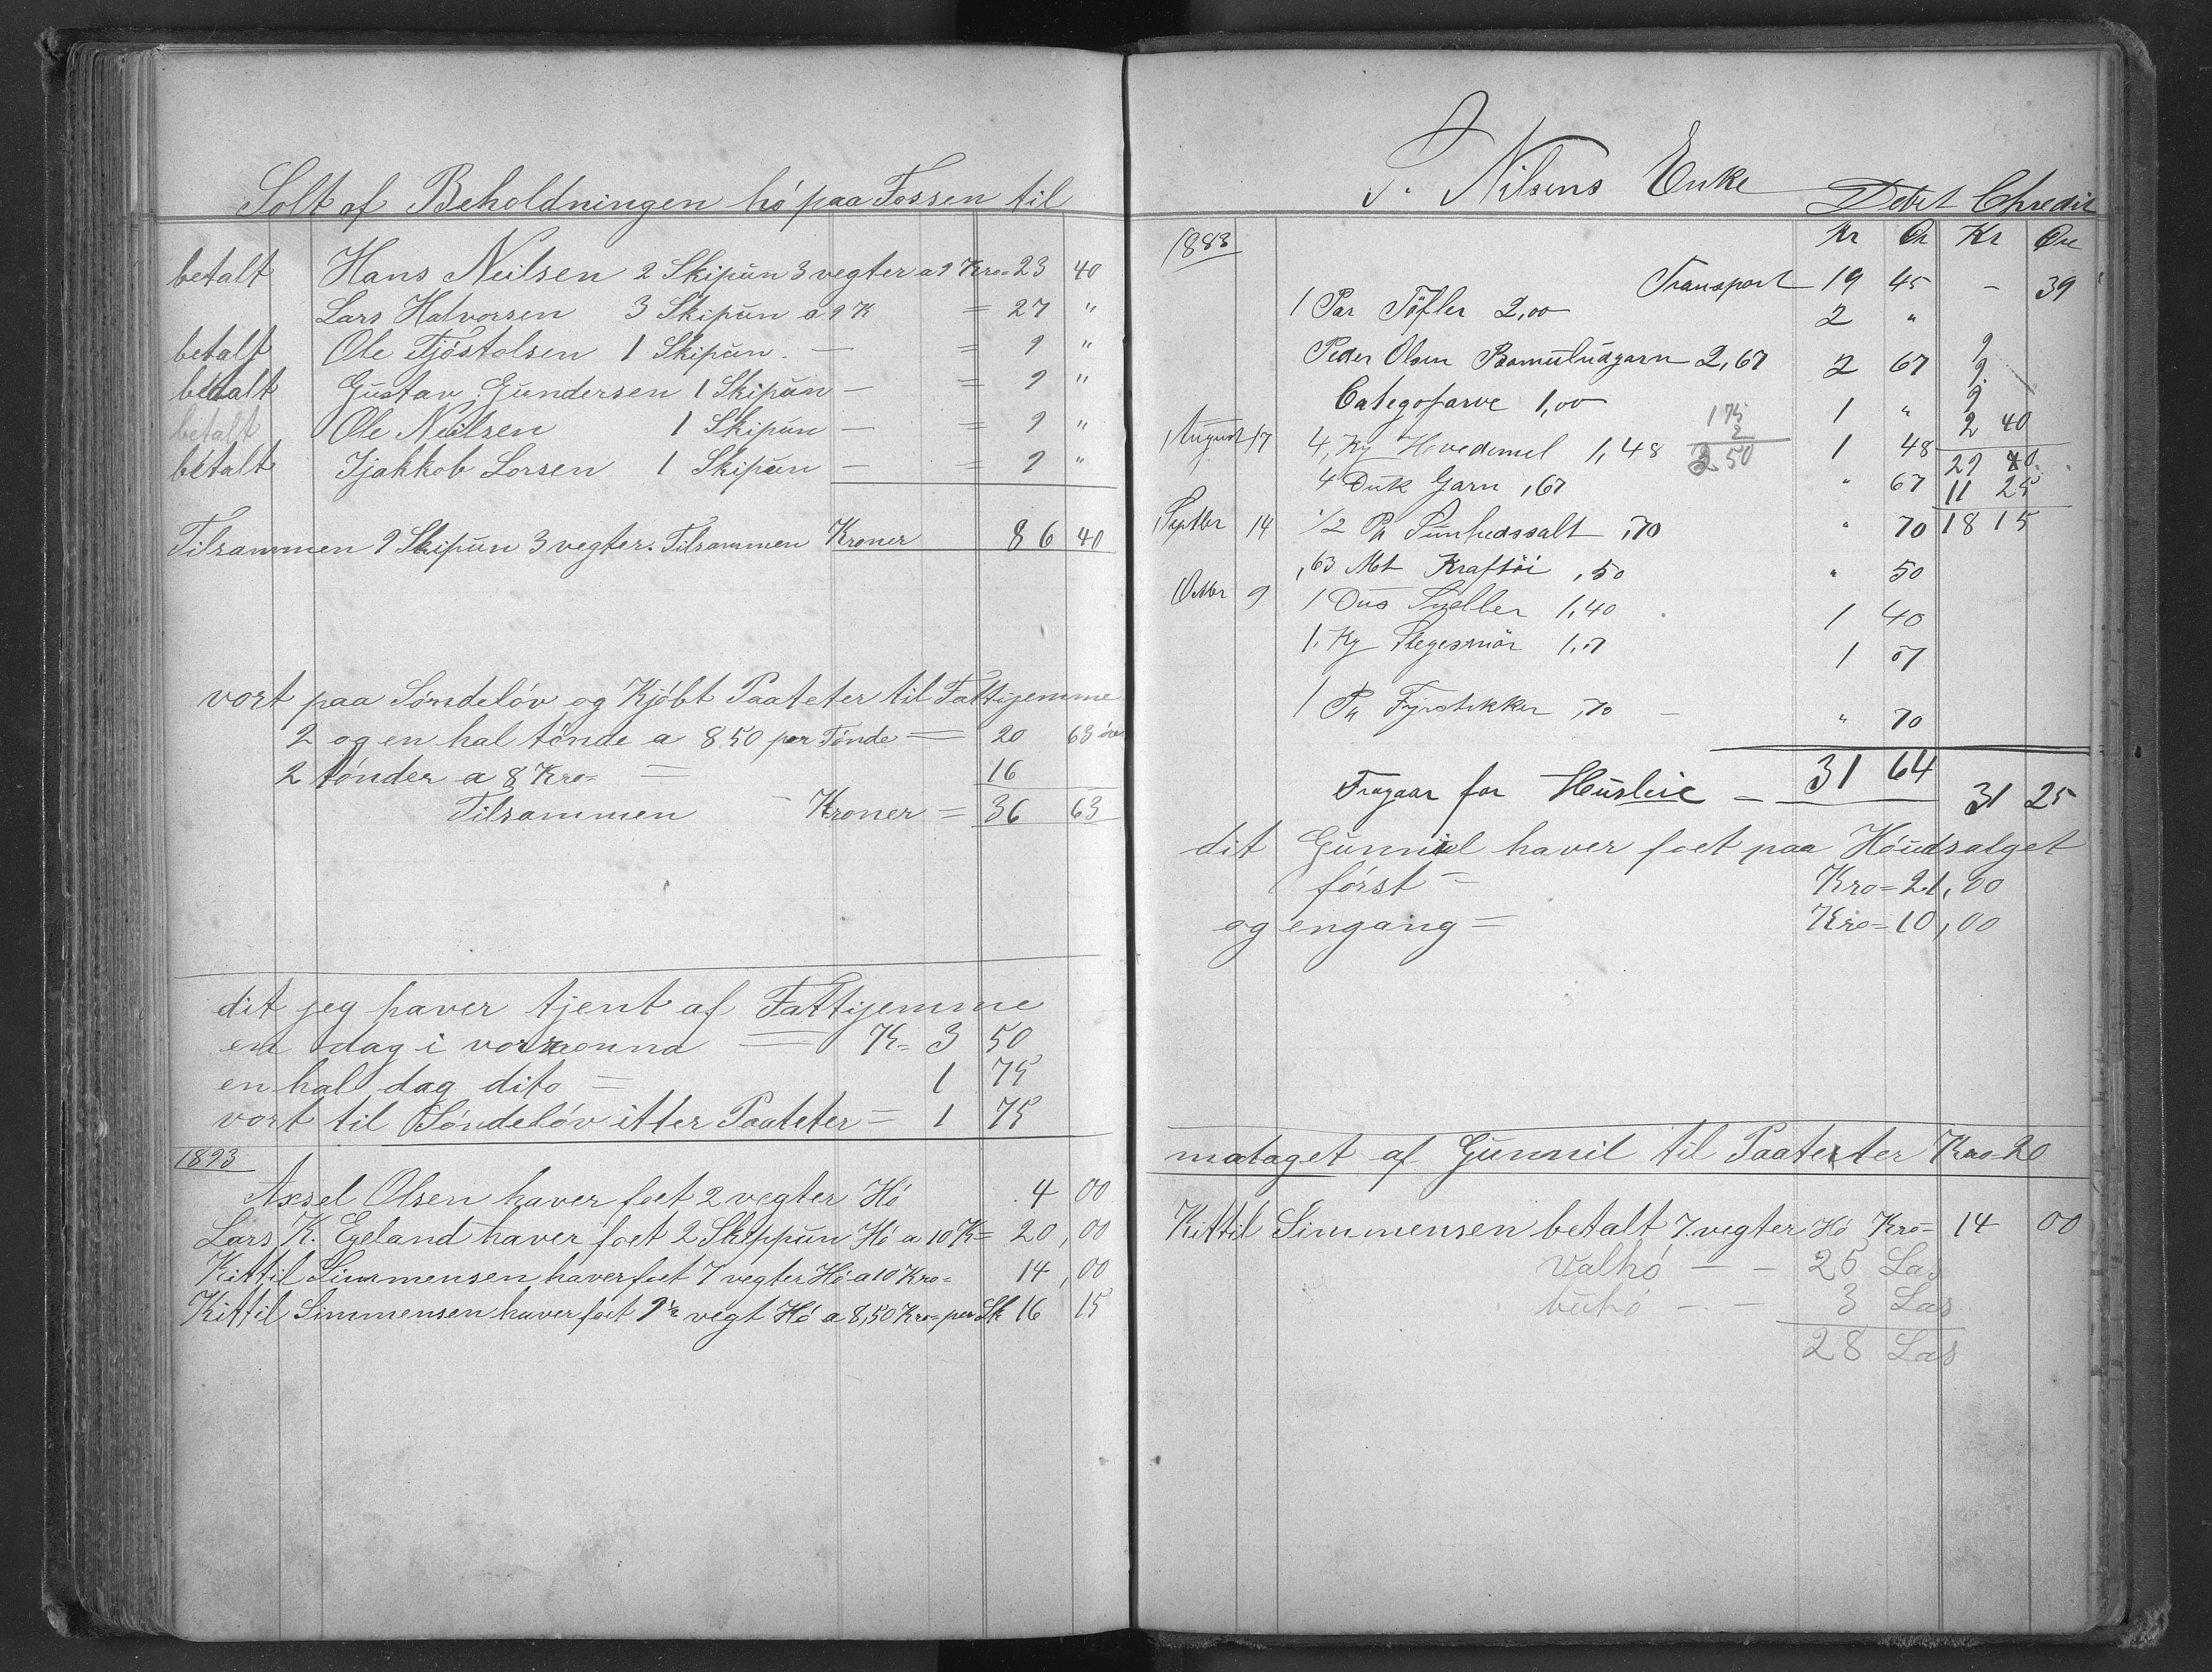 Solt af Beholdningen hó paa Fossen til
betalt Hans Neilsen 2 Skipun 3 vegter a 9 Kro= 23 40
Lars Halvorsen 3 Skipun a 9 K = 27 "
betalt Ole Tjóstolsen 1 Skipun. — = 9 "
betalt Gustav Gundersen 1 Skipun — = 9 "
betalt Ole Neilsen 1 Skipun — = 9 "
betalt Tjakkob Lorsen 1 Skipun — = 9 "
Tilsammen 9 Skipun 3 vegter. Tilsammen Kroner 86 40
vort paa Sónsdelóv og Kjóbt Paateter til Fattijemme
2 og en hal tónde a 8 50 per Tónde = 20 63 óre
2 tónder a 8 Kro= = 16
Tilsammen — Kroner = 36 63
dit jeg haver tjent af Fattijemme
en dag i voraonna = K= 3 50
en hal dag dito = 1 75
vort til Sóndelóv itter Paateter = 1 75
1893
Axsel Olsen haver foet 2 vegter Hó 4 00
Lars K. Egeland haver foet 2 Skippun Hó a 10 K= 20,00
Kittil Simmensen haver foet 7 vegter Hó a 10 Kro= 14,00
Kittil Simmensen haver foet 9½ vegt Hó a 8,50 Kro= per Sk 16 15
P. Nilsens Enke
Debet Chredit
1883 Kr Ør Kr Øre
Transport 19 45 – 39
1 Par Töfler 2,00 2 "
Peder Olsen Bomuludgarn 2,67 2 67 9
9
Categofarve 1,00 1 " 9
175 2 40
August 17 4, Kg Hvedemel 1,48 2 1 48 29 40
3 50
4 Duk Garn ,67 " 67 11 25
Septber 14 1/2 Pk Sunhedssalt ,70 " 70 18 15
,63 Mt Kraftöi ,50 " 50
Octbr 9 1 Dus Sneller 1,40 1 40
1. Kg Stegesmör 1,07 1 07
1 Pk Fyrstikker ,70 — " 70
31 64
Fragaar for Husleie — 31 25
dit Gunniel haver foet paa Hóudsalget
fórst = Kro= 21,00
og engang = Kro= 10,00
mataget af Gunnil til Paateter Kro= 20
Kittil Simmensen betalt 7. vegter Hó Kro= 14 00
Valhó — — 25 Las
buhó — — 3 Las
28 Las